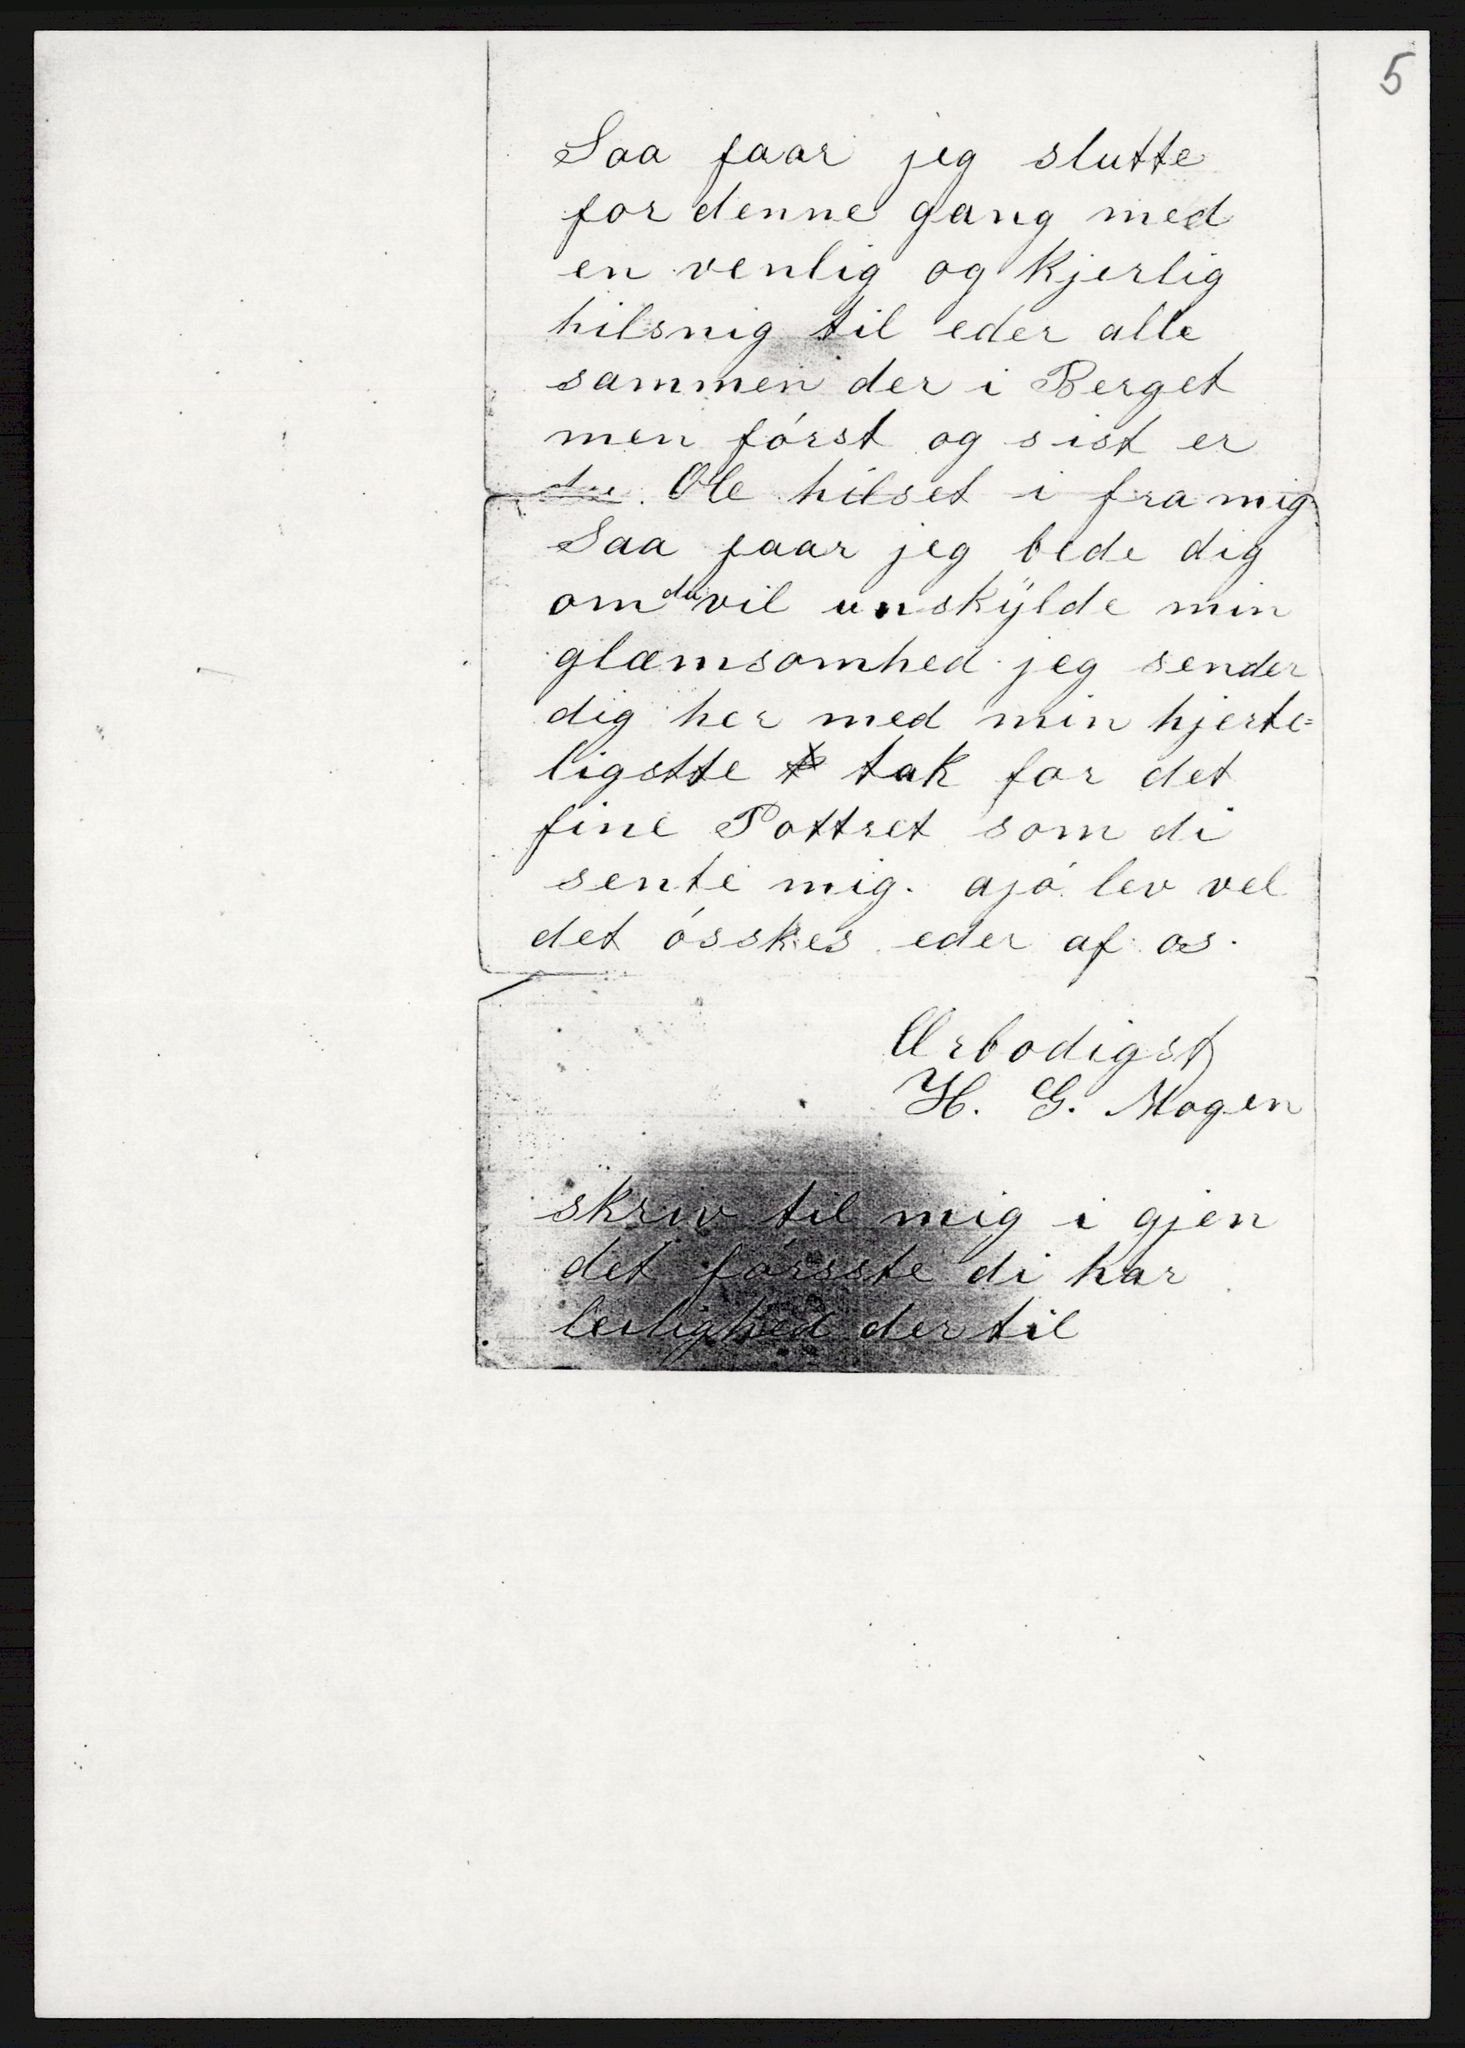 5
Saa faar jeg slutte
for denne gang med
en venlig og kjerlig
hilsnig til eder alle
sammen der i Berget
men först og sist er
du Ole hilset i fra mig
Saa faar jeg bede dig
om du vil unskÿlde min
glæmsomhed jeg sender
dig her med min hjerte=
ligstte tak for det
fine Pottret som di
sente mig. ajö lev vel
det össkes eder af os.
Ærbodigst
H. G. Mogen
skriv til mig i gjen
det försste di har
leilighed der til